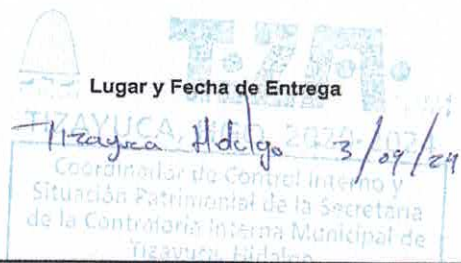 Lugar y Fecha de Entrega
TIZAYUCA, HGO. 2020-2024
Tizayuca Hidalgo 3/09/24
Coordinador de Control Interno y
Situación Patrimonial de la Secretaría
de la Contraloría Interna Municipal de
Tizayuca, Hidalgo